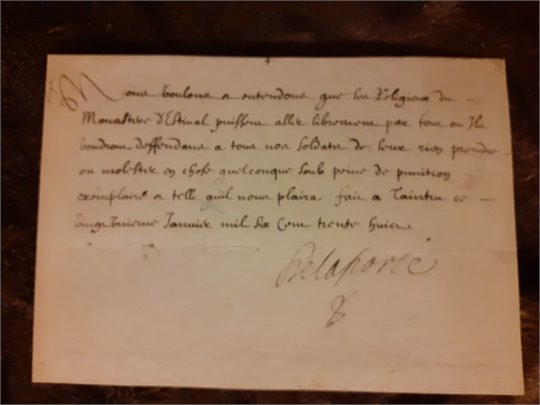 Nous voulons et entendons que les Religieux du
Monastere d'Estival puissent aller librement par tout ou Ilz
voudront deffendans a tous nos soldats de leur rien prendre
ou molester en chose quelconque soub peine de punition
exemplaire et telle quil nous plaira. fait a Taintru ce
vingt uniesme Janvier mil six cent trente huict.
Delaporte